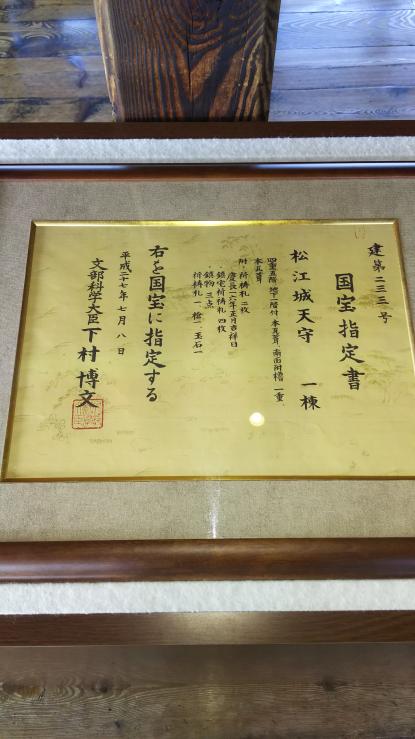 建第二三三号
国宝指定書
松江城天守 一棟
四重五階、地下一階付、本瓦葺、南面附櫓一重、
本瓦葺
附・祈祷札 二枚
慶長一六年正月吉祥日
・鎮宅祈祷札 四枚
・鎮物 三点
祈祷札一、槍一、玉石一
右を国宝に指定する
平成二十七年七月八日
文部科学大臣 下村博文